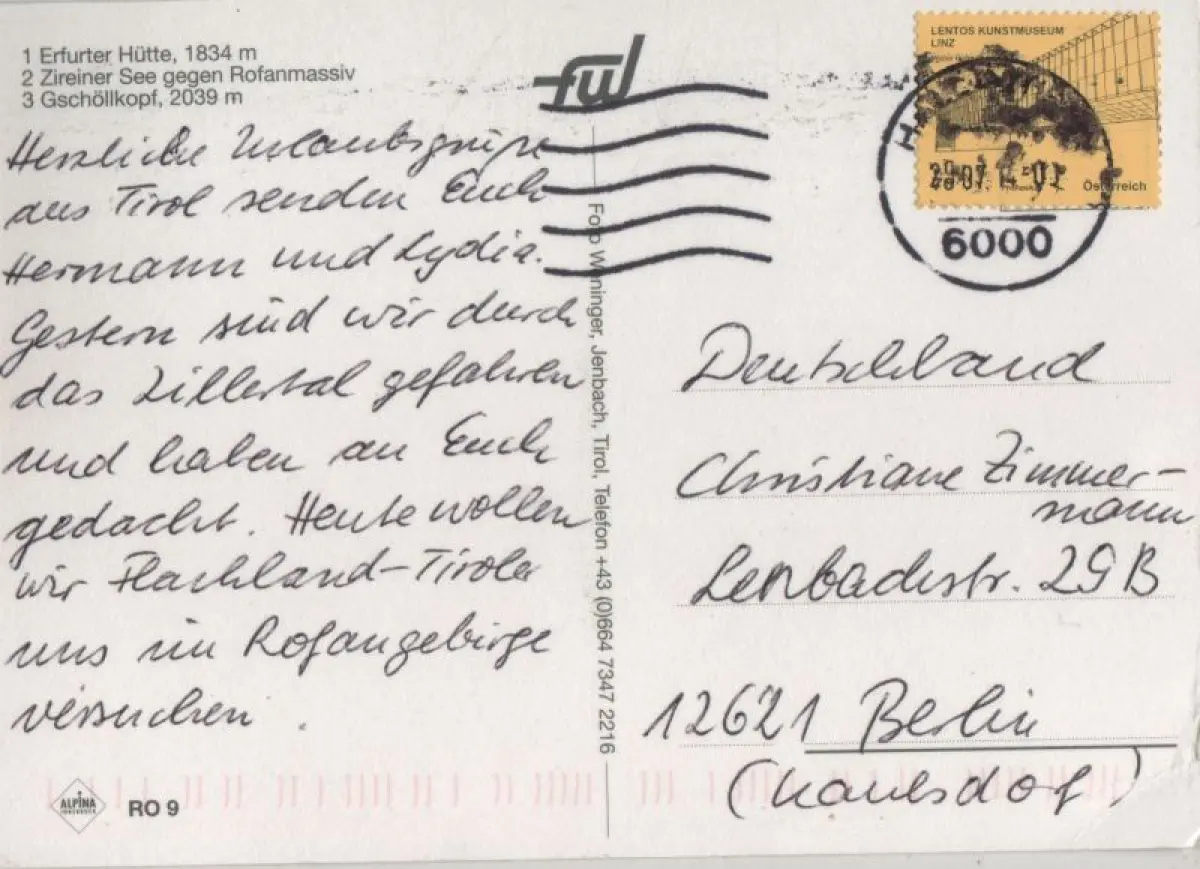 1 Erfurter Hütte, 1834 m
2 Zireiner See gegen Rofanmassiv
3 Gschöllkopf, 2039 m
fwl
Herzliche Urlaubsgrüße
aus Tirol senden Euch
Hermann und Lydia.
Gestern sind wir durch
das Zillertal gefahren
und haben an Euch
gedacht. Heute wollen
wir Flachland-Tiroler
uns im Rofangebirge
versuchen.
ALPINA
INNSBRUCK
RO 9
Foto Weninger, Jenbach, Tirol, Telefon +43 (0)664 7347 2216
LENTOS KUNSTMUSEUM
LINZ
Österreich
6000
Deutschland
Christiane Zimmer-
mann
Lenbachstr. 29B
12621 Berlin
(Kaulsdorf)